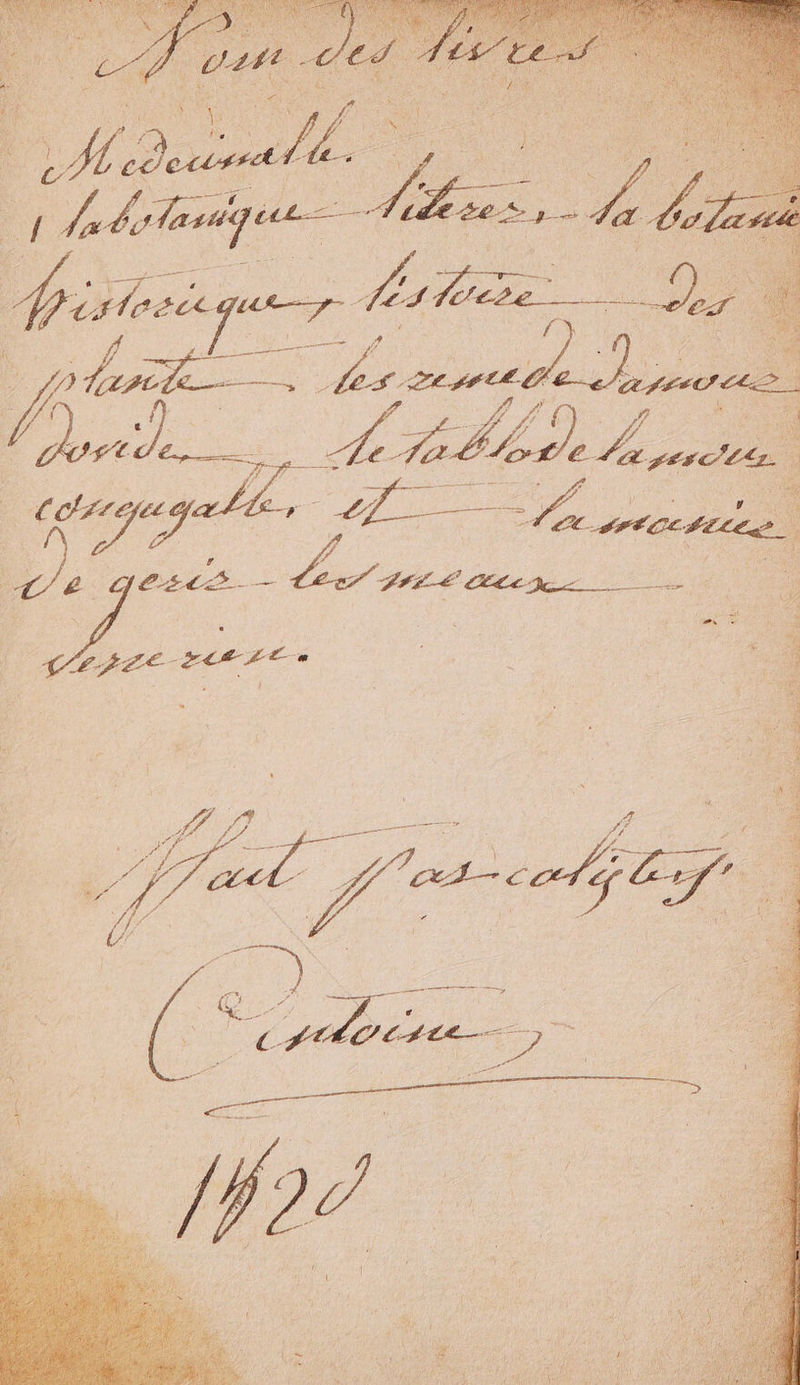 Nom des livres
Medecinalle.
1 labotanique literer, la botanie
historicque, listoire des
plante, les remede damour
dovide, le tablodelamour
congugalle, et la manier
De gerir les meaux
venerien.
fait par caliste
Antoine
1820